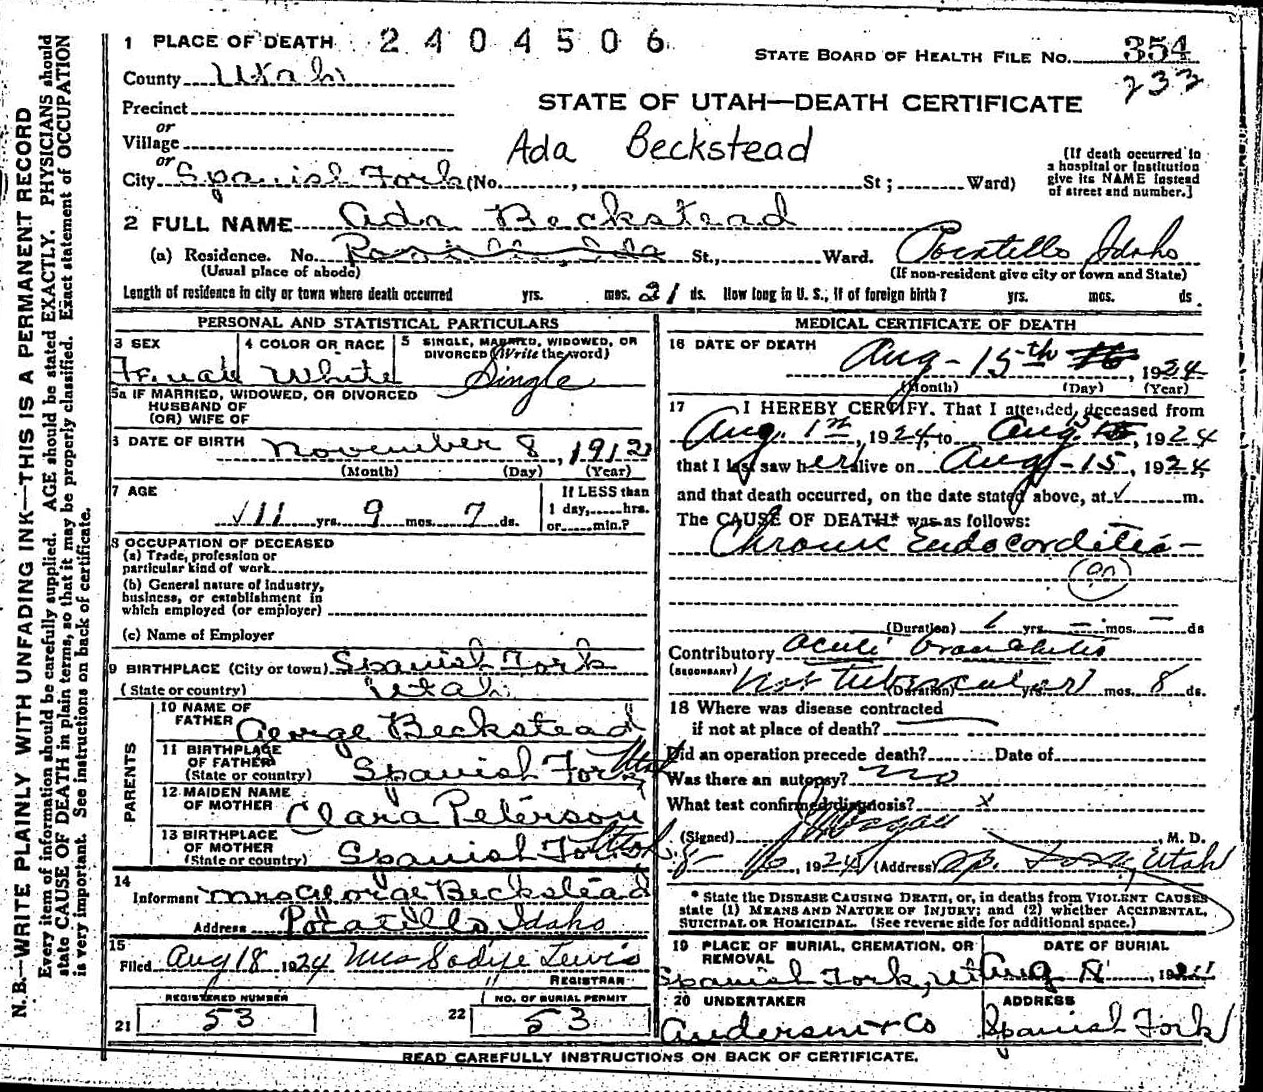 N. B.—WRITE PLAINLY WITH UNFADING INK—THIS IS A PERMANENT RECORD
Every item of information should be carefully supplied. AGE should be stated EXACTLY. PHYSICIANS should
state CAUSE OF DEATH in plain terms, so that it may be properly classified. Exact statement of OCCUPATION
is very important. See instructions on back of certificate.
1 PLACE OF DEATH 2404506
STATE BOARD OF HEALTH FILE NO. 354
County Utah 232
Precinct STATE OF UTAH—DEATH CERTIFICATE
or
Village Ada Beckstead
or
City Spanish Fork (No. , St ; Ward)
(If death occurred in
a hospital or institution
give its NAME instead
of street and number.]
2 FULL NAME Ada Beckstead
(a) Residence. No. St., Ward. Pocatello Idaho
(Usual place of abode) (If non-resident give city or town and State)
Length of residence in city or town where death occurred yrs. mos. 21 ds. How long in U. S., if of foreign birth? yrs. mos. ds.
PERSONAL AND STATISTICAL PARTICULARS
3 SEX 4 COLOR OR RACE 5 SINGLE, MARRIED, WIDOWED, OR
DIVORCED (Write the word)
White Single
5a IF MARRIED, WIDOWED, OR DIVORCED
HUSBAND OF
(OR) WIFE OF
6 DATE OF BIRTH November 8, 1912
(Month) (Day) (Year)
7 AGE If LESS than
1 day, hrs.
11 yrs. 9 mos. 7 ds. or min.?
8 OCCUPATION OF DECEASED
(a) Trade, profession or
particular kind of work
(b) General nature of industry,
business, or establishment in
which employed (or employer)
(c) Name of Employer
9 BIRTHPLACE (City or town) Spanish Fork
(State or country) Utah
PARENTS
10 NAME OF
FATHER George Beckstead
11 BIRTHPLACE
OF FATHER
(State or country) Spanish Fork Utah
12 MAIDEN NAME
OF MOTHER Clara Peterson
13 BIRTHPLACE
OF MOTHER
(State or country) Spanish Fork Utah
14
Informant Mrs George Beckstead
Address Pocatello Idaho
15
Filed Aug 18 1924 Mrs Lewis
REGISTRAR
REGISTERED NUMBER NO. OF BURIAL PERMIT
21 53 22 53
MEDICAL CERTIFICATE OF DEATH
16 DATE OF DEATH Aug - 15th 16, 1924
(Month) (Day) (Year)
17 I HEREBY CERTIFY. That I attended, deceased from
Aug. 1st, 1924, to Aug 15, 1924
that I last saw her alive on Aug - 15, 1924,
and that death occurred, on the date stated above, at m.
The CAUSE OF DEATH* was as follows:
Chronic Endocarditis -
90
(Duration) 1 yrs. - mos. - ds
Contributory Acute bronchitis
(SECONDARY) Not Tubercular
(Duration) yrs. mos. 8 ds.
18 Where was disease contracted
if not at place of death?
Did an operation precede death? Date of
Was there an autopsy? no
What test confirmed diagnosis? x
(Signed) , M. D.
8 - 16, 1924 (Address) Sp. Fork, Utah
* State the DISEASE CAUSING DEATH, or, in deaths from VIOLENT CAUSES
state (1) MEANS AND NATURE OF INJURY; and (2) whether ACCIDENTAL,
SUICIDAL OR HOMICIDAL. (See reverse side for additional space.)
19 PLACE OF BURIAL, CREMATION, OR
REMOVAL DATE OF BURIAL
Spanish Fork, Ut Aug
20 UNDERTAKER ADDRESS
Anderson & Co Spanish Fork
READ CAREFULLY INSTRUCTIONS ON BACK OF CERTIFICATE.